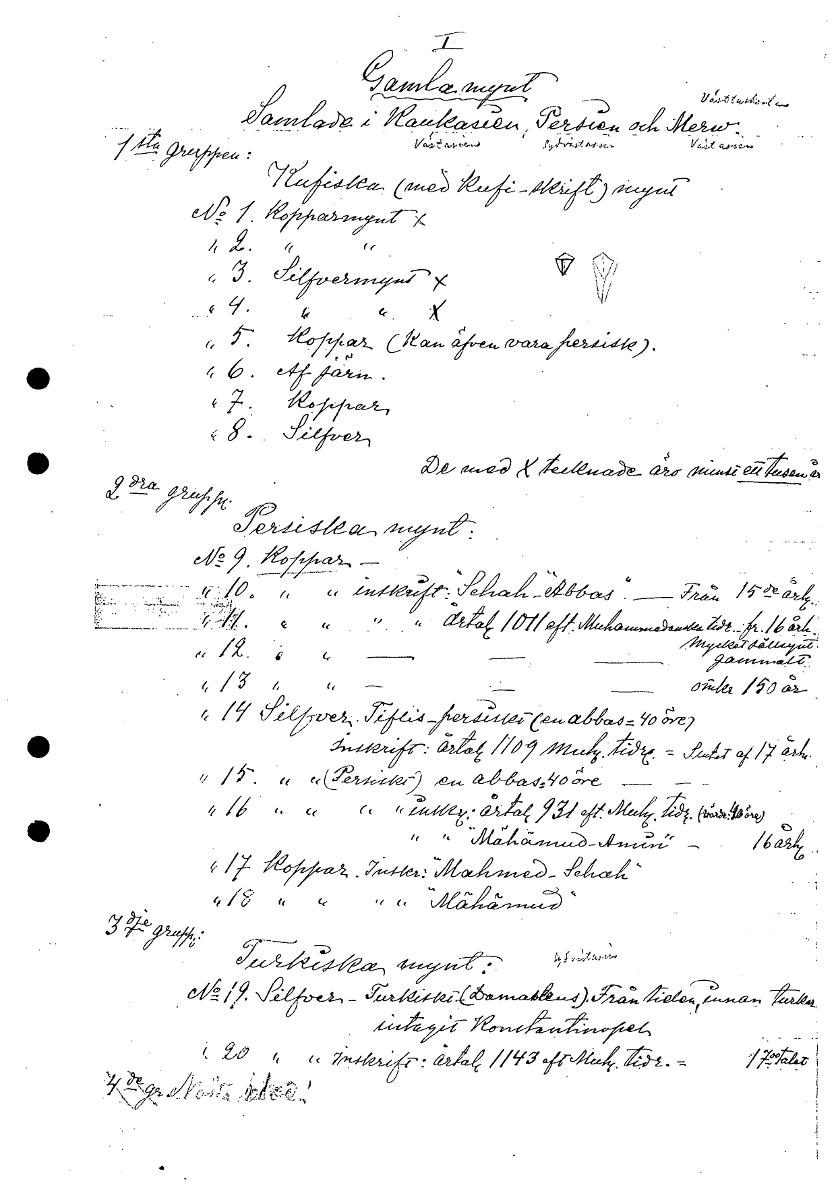 I
Gamla mynt
Västturkestan
Samlade i Kaukasien, Persien och Merw.
Västasien Sydvästasien Västasien
1sta gruppen:
Kufiska (med Kufi-skrift) mynt
No 1. Kopparmynt X
" 2. " "
" 3. Silfvermynt X
" 4. " " X
" 5. Koppar (Kan äfven vara persisk).
" 6. Af järn.
" 7. Koppar
" 8. Silfver
De med X tecknade äro minst ett tusen år
2dra grupp.
Persiska mynt:
No 9. Koppar —
" 10. " " inskrift: "Schah-Abbas". — Från 15de årh.
" 11. " " " " årtal 1011 eft. Muhammedanska tidr. — fr. 16 årh.
" 12. " " — — — Mycket sällsynt
gammalt
" 13 " " — — — omkr 150 år
" 14 Silfver. Tiflis-persiskt (en abbas = 40 öre)
Inskrift: årtal 1109 Muh. tidr. = Slutet af 17 årh.
" 15. " " (Persiskt) en abbas=40 öre — —
" 16 " " " " inskr: årtal 931 eft. Muh. tidr. (värde: 40 öre)
" " "Mähämud-Amin" — 16 årh.
" 17 Koppar. Inskr: "Maehmed-Schah"
" 18 " " " " "Mähämud"
3dje grupp:
Turkiska mynt: Sydvästasien
No 19. Silfver - Turkiskt (Damaskus). Från tiden, innan turkar
intagit Konstantinopel
" 20 " " Inskrift: årtal 1143 eft Muh. tidr. = 1700talet
4de gr. Nästa blad!